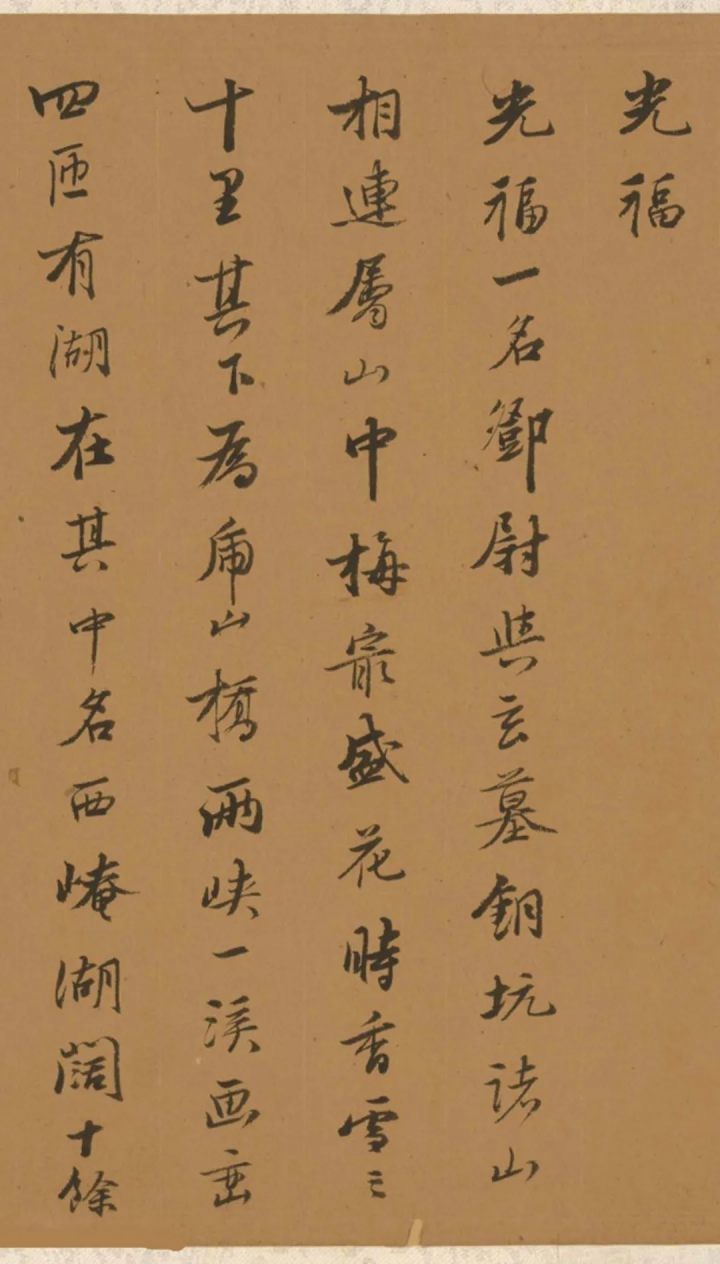 光福
光福一名鄧尉與玄墓銅坑諸山
相連屬山中梅最盛花時香雪三
十里其下為虎山橋兩峽一溪画峦
四匝有湖在其中名西崦湖闊十餘